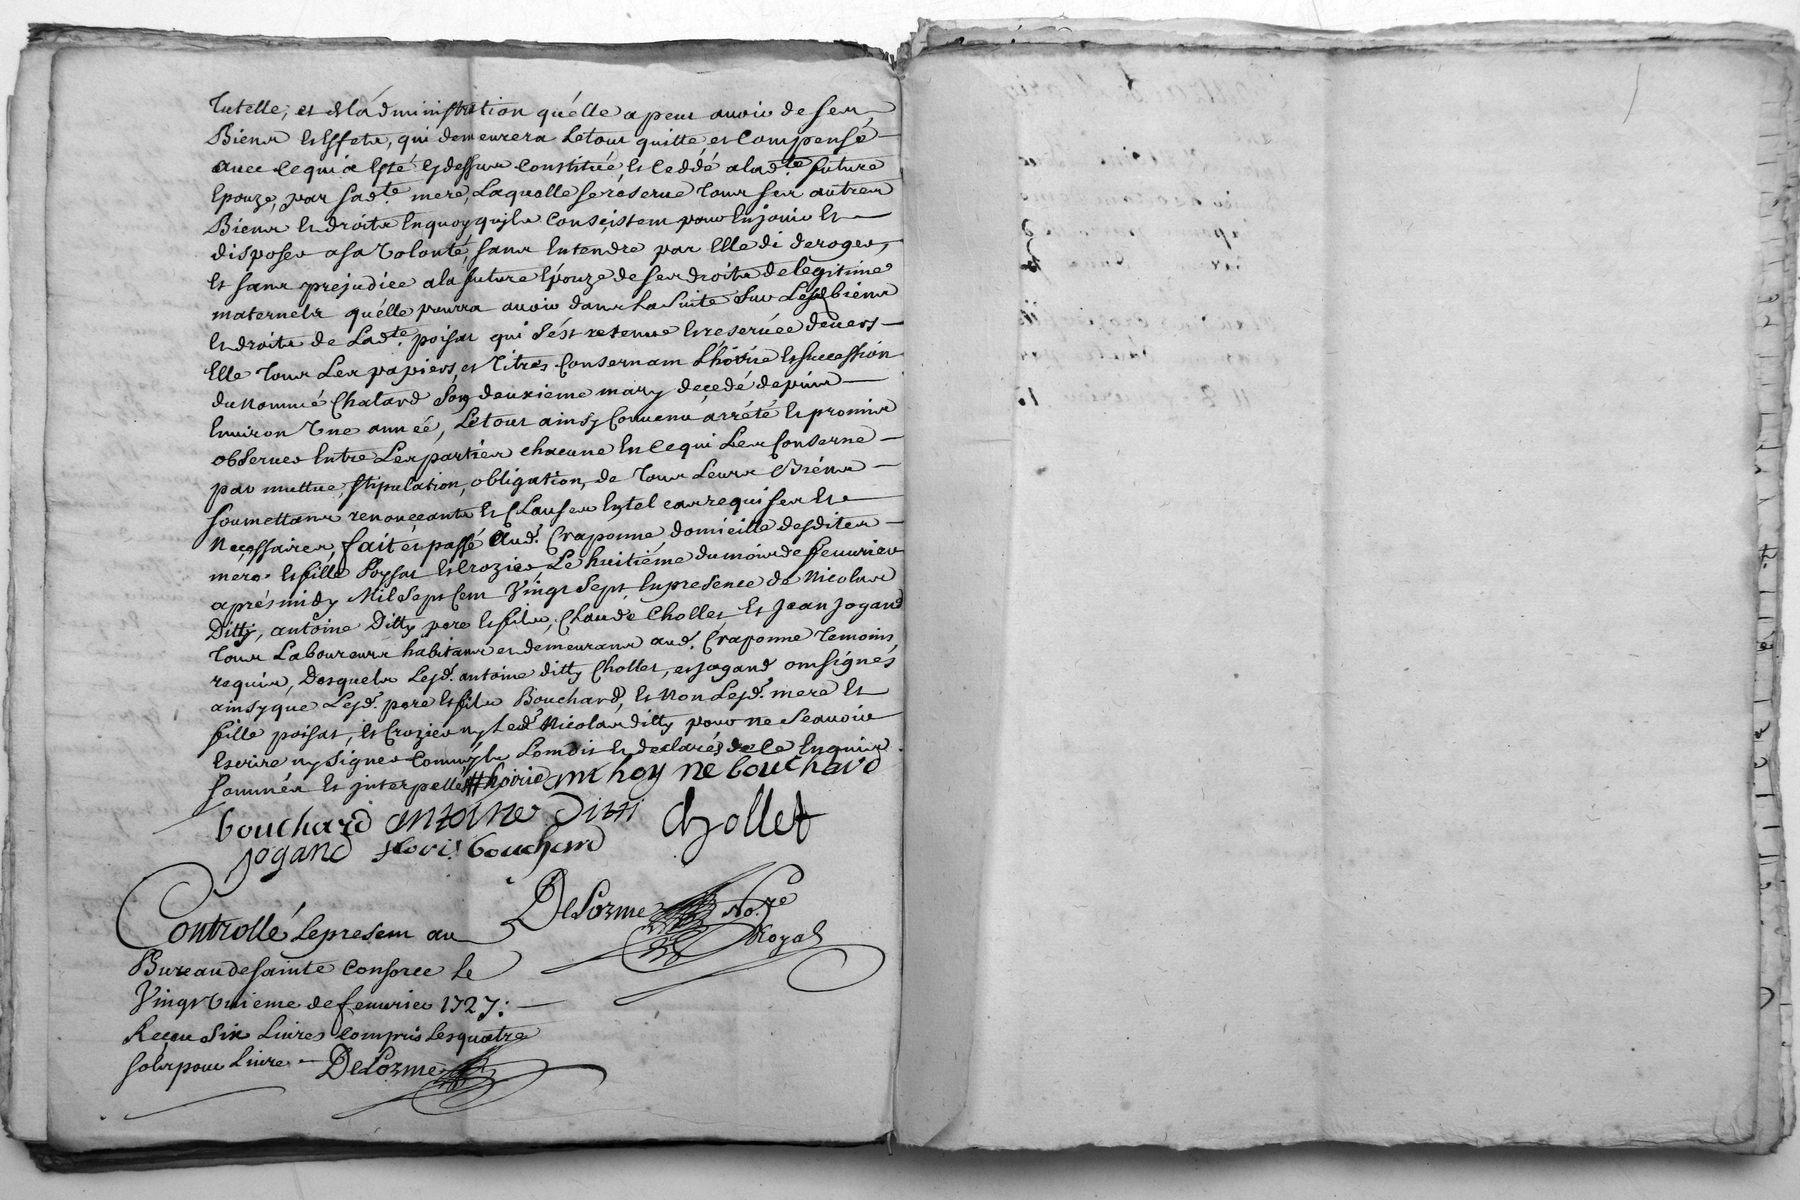 Tutelle, et de l'administration qu'elle a peut avoir de ses
Biens et effets, qui demeurera Letout quitte, et Compensé
avec ce qui a esté cy dessus constitué, et Ceddé alad.te future
Epouze, par sad.te mere, Laquelle se reserve Tous ses autres
Biens et droits En quoy qu'ils conscistent pour En jouir et
disposer a sa Volonté, sans Entendre par Elle di deroger,
et sans prejudice ala future Epouze de ses droits de legitime
maternels qu'elle pourra avoir dans La Suite Sur Lesd. biens
et droits de Lad.te poisat qui s'est retenue et reservée devers
Elle Tous Les papiers, et Titres Consernant L'hoirie et succession
du Nommé Chatard Son deuxieme mary decedé depuis
Environ Une année, Letout ainsy Convenu, arrété et promis
observer Entre Les parties chacune En ce qui Les Conserne
par muttue, stipulation, obligation, de Tous Leurs Biéns
soumettans renonceants et Clauses En tel cas requises et
Necessaires, fait et passé aud. Craponne, domicille desdites
mere et fille Poysat et Crozier, Le huitiéme du mois de fevvrier
aprés midy Mil Sept Cent Vingt Sept En presence de Nicolas
Ditty, antoine Ditty pere et fils, Claude Chollet et Jean Jogand
Tous Laboureurs habitans et demeurans aud. Craponne Temoins
requis, Desquels Lesd. antoine ditty Chollet, et Jogand ont signés
ainsy que Lesd. pere et fils Bouchard, et Non Lesd. mere et
fille poisat, et Crozier ny Led. Nicolas ditty pour ne Scavoir
Escrire ny Signer Comme ils L'ont dit et declarés de ce Enquis
sommés et interpellés # hoirie m hoy ne bouchard
bouchard antoine Ditti Chollet
Jogand bouchard
DeLorme No.re
Royal
Controllé Le present au
Bureau de sainte Consorce le
Vingt Unieme de fevvrier 1727:
Receu Six Livres Compris Les quatre
sols pour Livre DeLorme